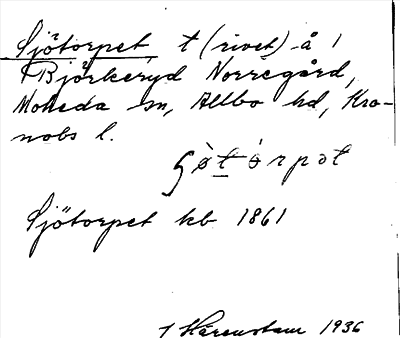 Sjötorpet, t (rivet) å 1
Björkeryd Norregård,
Moheda sn, Allbo hd, Kro-
nobs l.
Sjötorpet kb 1861
1936